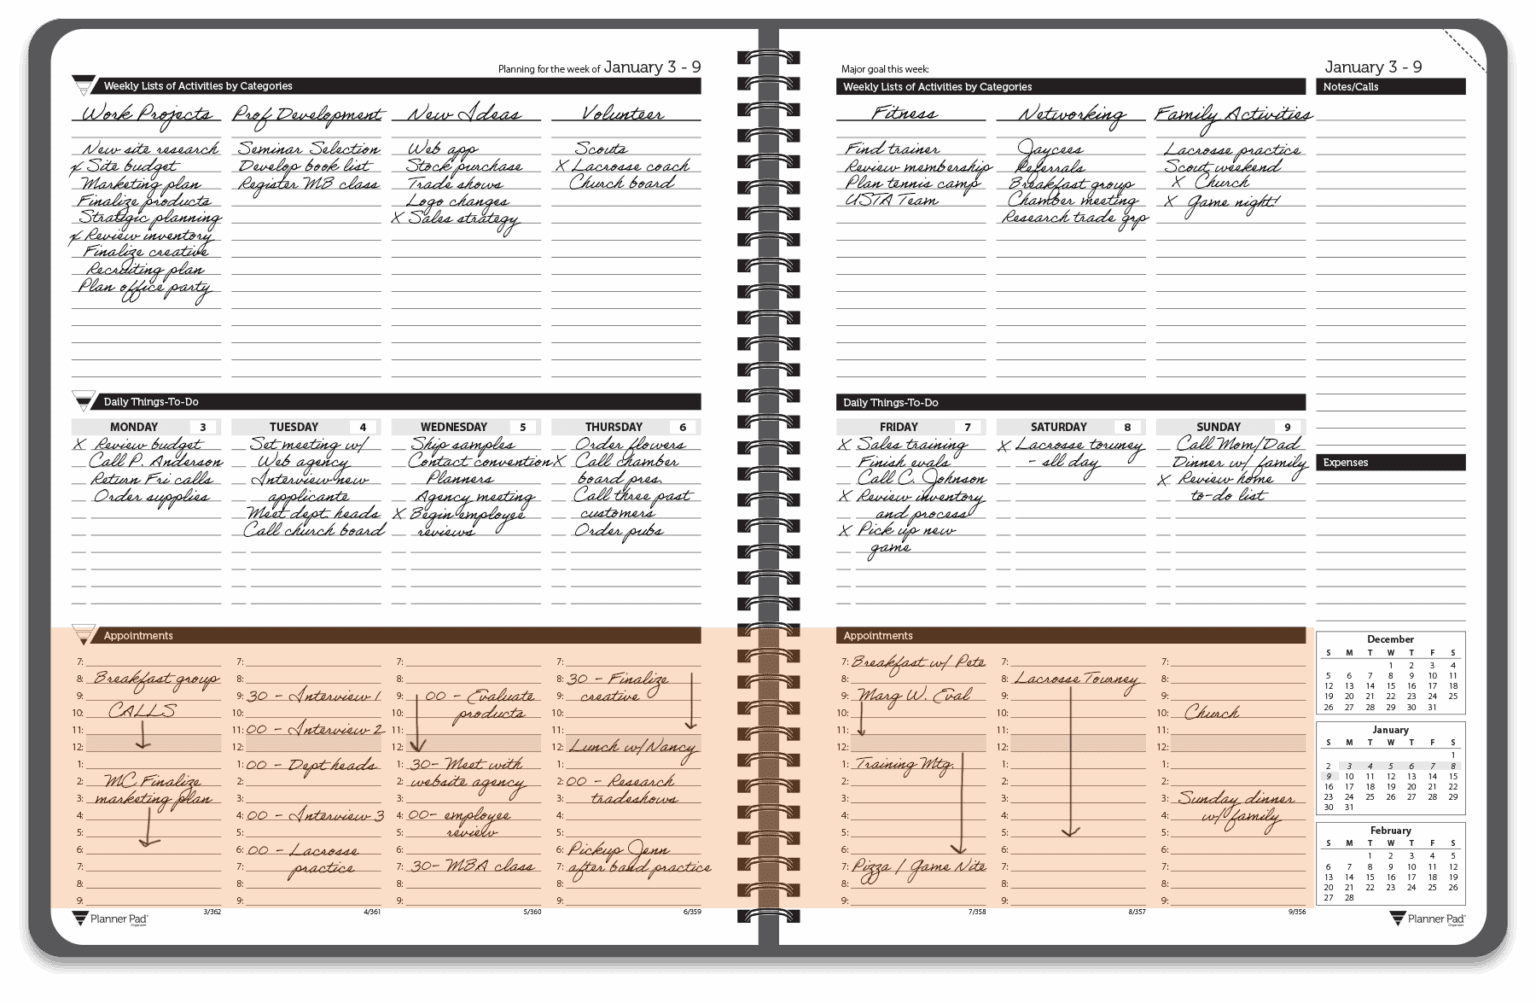 Planning for the week of January 3 - 9
Weekly Lists of Activities by Categories
Work Projects
New site research
x Site budget
Marketing plan
Finalize products
Strategic planning
x Review inventory
Finalize creative
Recruiting plan
Plan office party
Prof Development
Seminar Selection
Develop book list
Register MB class
New Ideas
Web app
Stock purchase
Trade shows
Logo changes
X Sales strategy
Volunteer
Scouts
X Lacrosse coach
Church board
Daily Things-To-Do
MONDAY 3
X Review budget
Call P. Anderson
Return Fri calls
Order supplies
TUESDAY 4
Set meeting w/
Web agency
Interview new
applicants
Meet dept heads
Call church board
WEDNESDAY 5
Ship samples
Contact convention
Planners
Agency meeting
X Begin employee
reviews
THURSDAY 6
Order flowers
X Call chamber
board pres.
Call three past
customers
Order pubs
Appointments
7:
8: Breakfast group
9:
10: CALLS
11:
12:
1:
2: MC Finalize
3: marketing plan
4:
5:
6:
7:
8:
9:
3/362
7:
8:
9: 30 - Interview 1
10:
11: 00 - Interview 2
12:
1: 00 - Dept heads
2:
3:
4: 00 - Interview 3
5:
6: 00 - Lacrosse
7: practice
8:
9:
4/361
7:
8:
9: 00 - Evaluate
10: products
11:
12:
1: 30- Meet with
2: website agency
3:
4: 00- employee
5: review
6:
7: 30- MBA class
8:
9:
5/360
7:
8: 30 - Finalize
9: creative
10:
11:
12: Lunch w/ Nancy
1:
2: 00 - Research
3: tradeshows
4:
5:
6: Pickup Jenn
7: after band practice
8:
9:
6/359
Planner Pad
Organizers
Major goal this week:
January 3 - 9
Weekly Lists of Activities by Categories
Fitness
Find trainer
Review membership
Plan tennis camp
USTA Team
Networking
Jaycees
Referrals
Breakfast group
Chamber meeting
Research trade grp
Family Activities
Lacrosse practice
Scout weekend
X Church
X Game night!
Notes/Calls
Daily Things-To-Do
FRIDAY 7
X Sales training
Finish evals
Call C. Johnson
X Review inventory
and process
X Pick up new
game
SATURDAY 8
X Lacrosse tourney
- all day
SUNDAY 9
Call Mom/Dad
Dinner w/ family
X Review home
to-do list
Expenses
Appointments
7: Breakfast w/ Pete
8:
9: Marg W. Eval
10:
11:
12:
1: Training Mtg.
2:
3:
4:
5:
6:
7: Pizza / Game Nite
8:
9:
7/358
7:
8: Lacrosse Tourney
9:
10:
11:
12:
1:
2:
3:
4:
5:
6:
7:
8:
9:
8/357
7:
8:
9:
10: Church
11:
12:
1:
2:
3: Sunday dinner
4: w/ family
5:
6:
7:
8:
9:
9/356
December
S M T W T F S
1 2 3 4
5 6 7 8 9 10 11
12 13 14 15 16 17 18
19 20 21 22 23 24 25
26 27 28 29 30 31
January
S M T W T F S
1
2 3 4 5 6 7 8
9 10 11 12 13 14 15
16 17 18 19 20 21 22
23 24 25 26 27 28 29
30 31
February
S M T W T F S
1 2 3 4 5
6 7 8 9 10 11 12
13 14 15 16 17 18 19
20 21 22 23 24 25 26
27 28
Planner Pad
Organizers